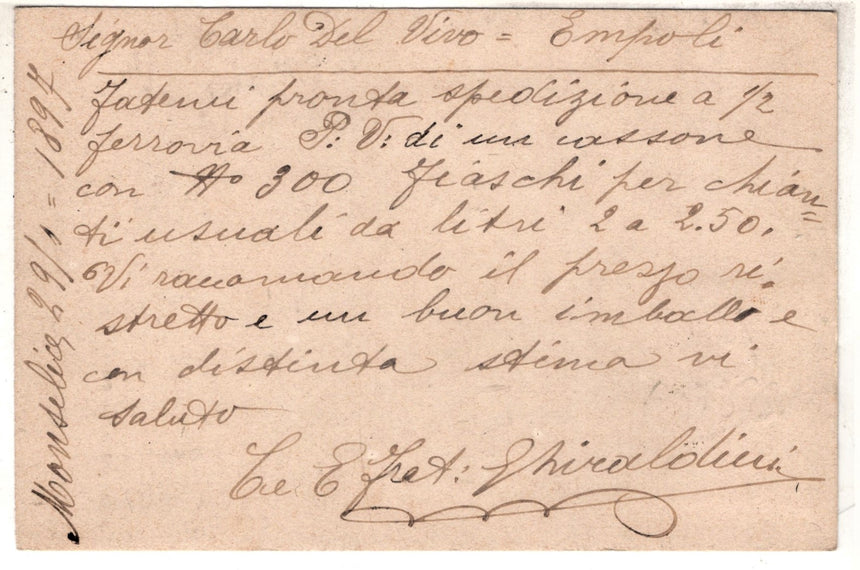 Signor Carlo Del Vivo = Empoli
Fatemi pronta spedizione a 1/2
ferrovia P: V: di un cassone
con No 300 Fiaschi per chian=
ti usuali da litri 2 a 2.50.
Vi racomando il prezzo ri=
stretto e un buon imballo e
con distinta stima vi
saluto
C e E frat: Ghiraldini
Monselice 29/1 = 1897